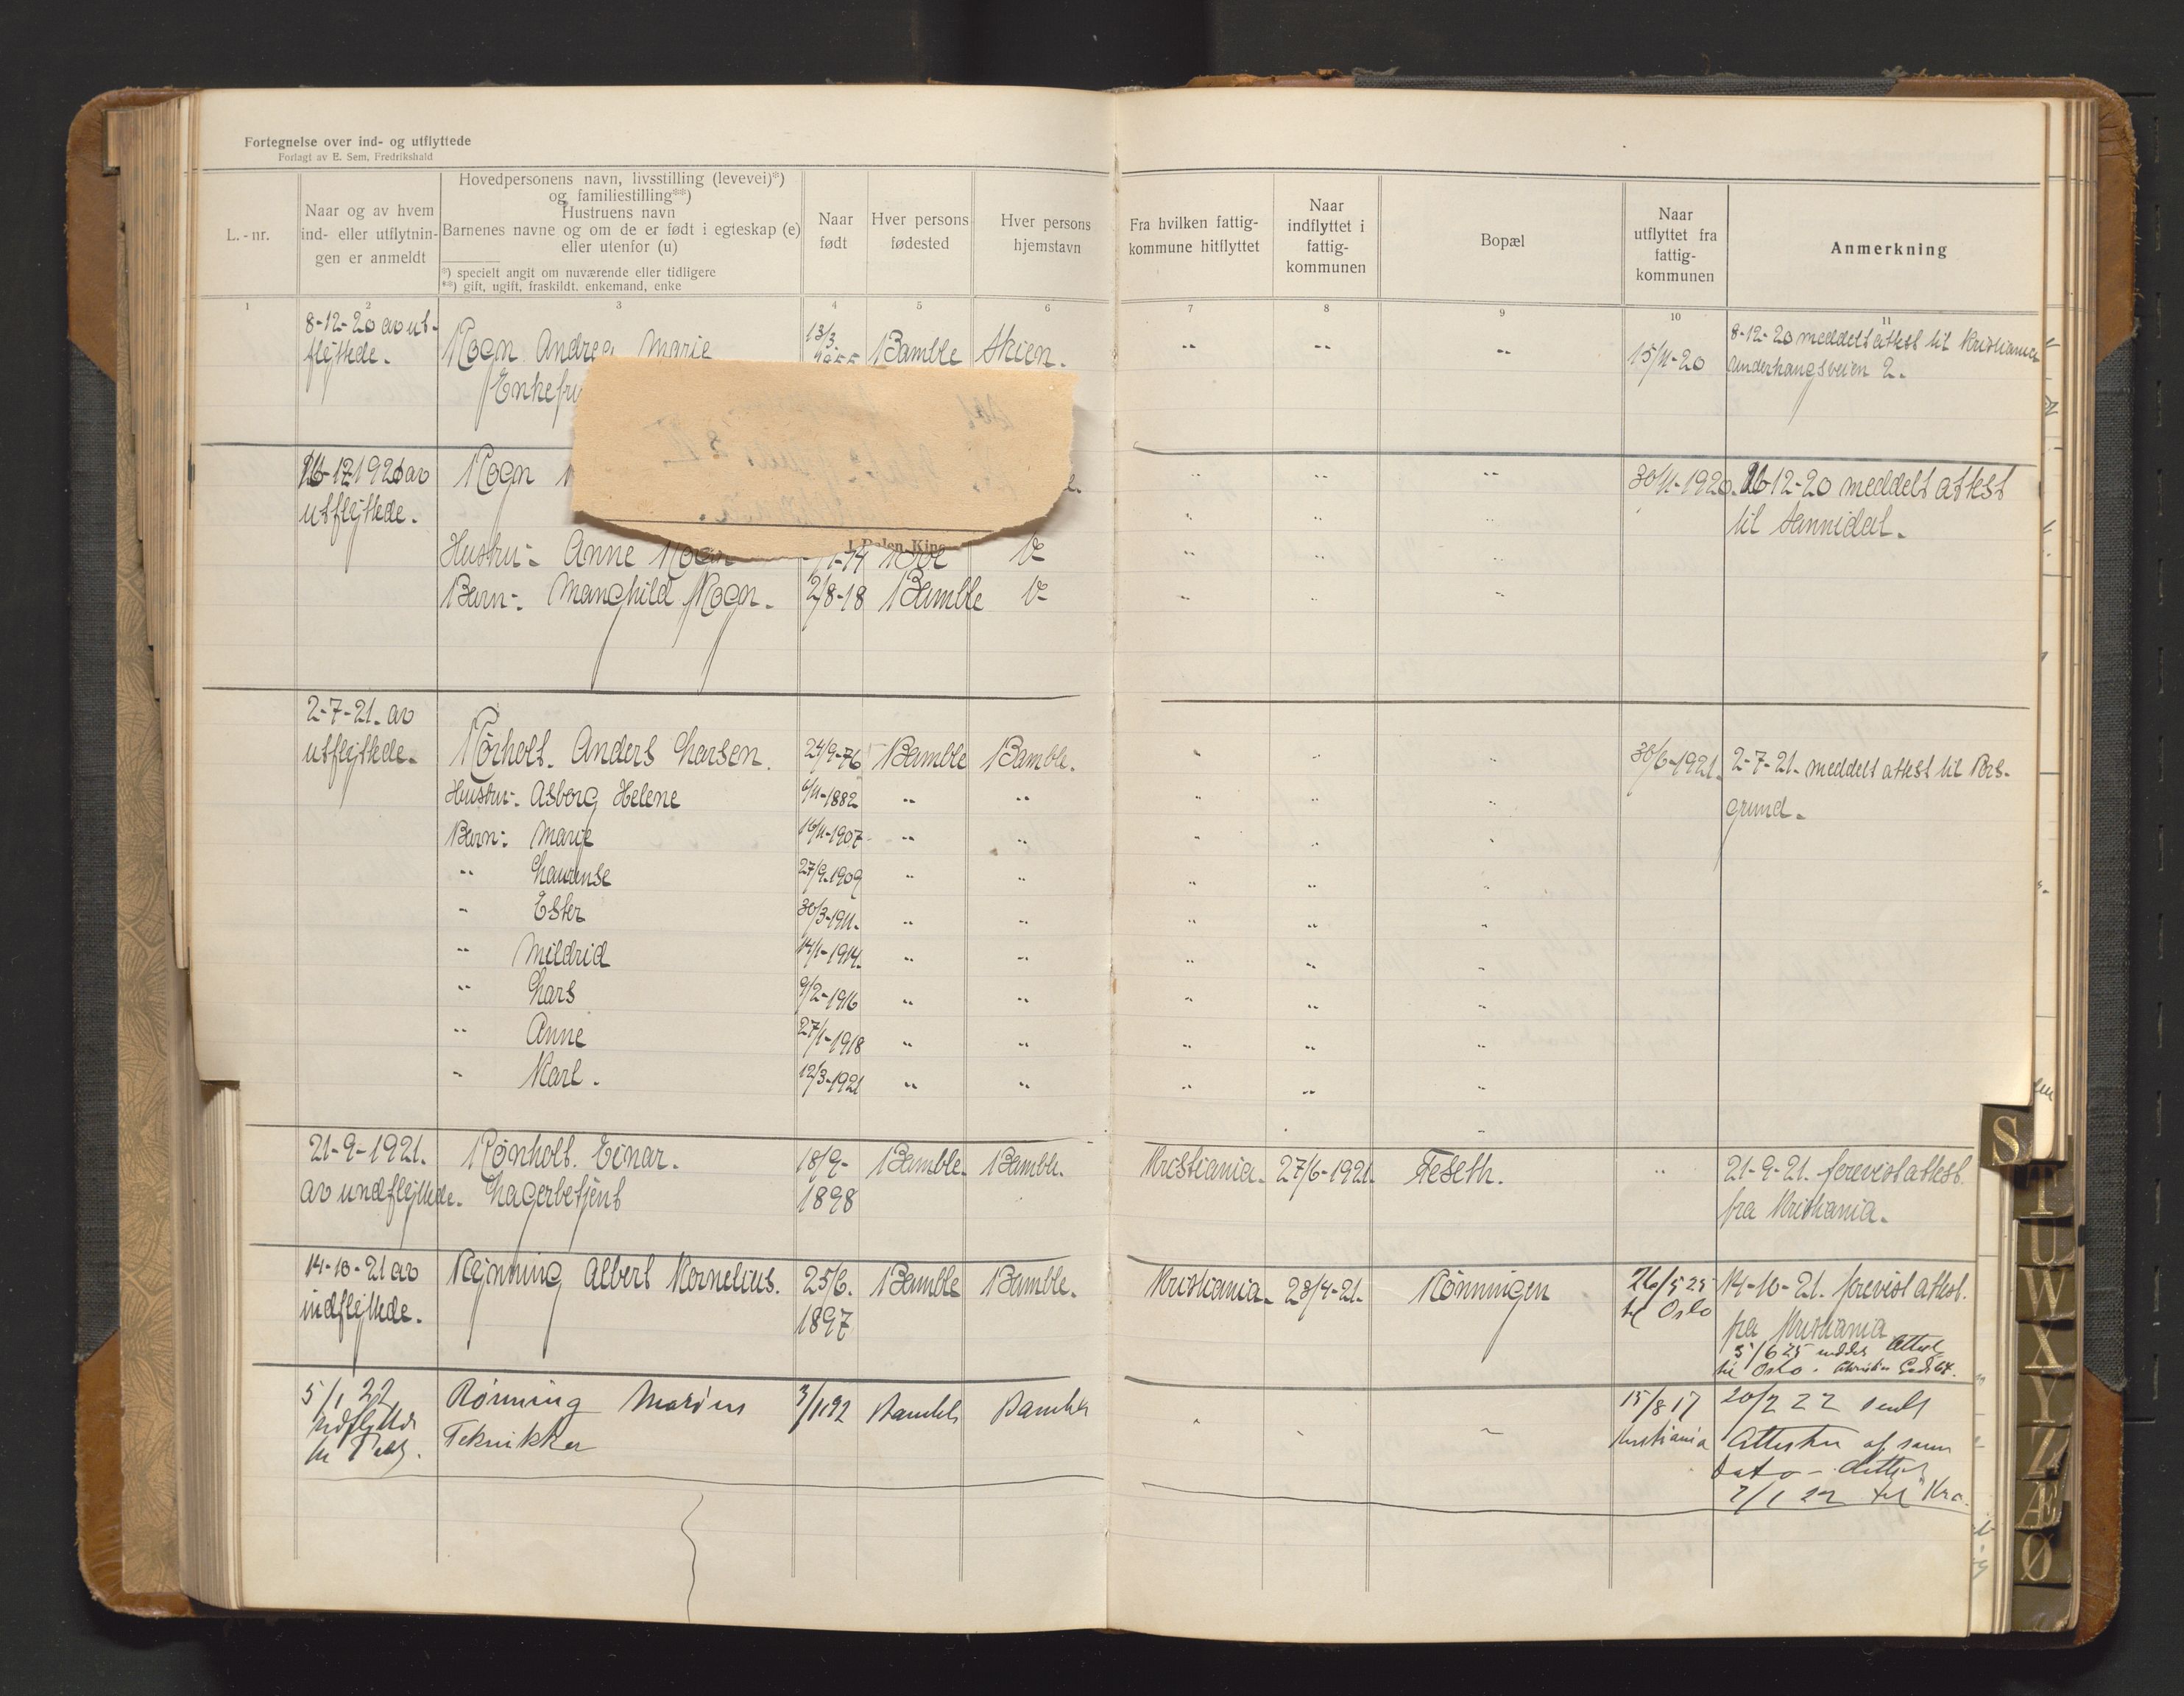 Fortegnelse over ind- og utflyttede
Forlagt av E. Sem, Fredrikshald
L.-nr.
Naar og av hvem
ind- eller utflytnin-
gen er anmeldt
Hovedpersonens navn, livsstilling (levevei)*)
og familiestilling**)
Hustruens navn
Barnenes navne og om de er født i egteskap (e)
eller utenfor (u)
*) specielt angit om nuværende eller tidligere
**) gift, ugift, fraskildt. enkemand, enke
Naar
født
Hver persons
fødested
Hver persons
hjemstavn
Fra hvilken fattig-
kommune hitflyttet
Naar
indflyttet i
fattig-
kommunen
Bopæl
Naar
utflyttet fra
fattig-
kommunen
Anmerkning
1 2 3 4 5 6 7 8 9 10 11
8-12-20 av ut-
flyttede.
Rogn Andrea Marie
Enkefru
13/3 Bamble Skien. " " "
15/11-20
8-12-20 meddelt attest til Kristiania
Underhaugsveien 2.
16-12 1920 av
utflyttede.
Rogn
" " "
30/11-1920. 16-12-20 meddelt attest
til Sannidal.
J. Dalen, King
Hustru:- Anne Rogn
Barn:- Manghild Rogn. 2/8-18 Bamble
2-7-21. av
utflyttede.
Rørholt. Anders Larsen. 24/9-76 Bamble Bamble. " " " 30/6-1921. 2-7-21. meddelt attest til Pors-
grund.
Hustru:- Asborg Helene 6/11-1882 " " " " "
Barn:- Marie 16/11-1907 " " " " "
" Laurense 27/9-1909 " " " " "
" Ester 30/3-1911. " " " " "
" Mildrid 14/1-1914. " " " " "
" Lars 9/2-1916 " " " " "
" Anne 27/1-1918 " " " " "
" Karl. 12/3-1921 " " " " "
21-9-1921.
av indflyttede.
Rønholt. Einar.
Lagerbetjent
18/9-
1898
Bamble. Bamble. Kristiania. 27/6-1921. Feseth. "
21-9-21. forevist attest.
fra Kristiania.
14-10-21 av
indflyttede.
Rynning Albert Kornelius. 25/6.
1897
Bamble Bamble. Kristiania. 28/4-21. Rønningen
26/5 25
til Oslo
14-10-21. forevist attest.
fra Kristiania
5/6 25 meddelt Attest
til Oslo.
5/1 22
Rønning Marius
Teknikker
3/1 92 Bamble Bamble " " "
15/8 17
Kristiania
20/2 22 sendt
Attesten af samme
Dato -
7/1 22 til Kra.
S
T
U
W
X
Y
Z
Æ
Ø